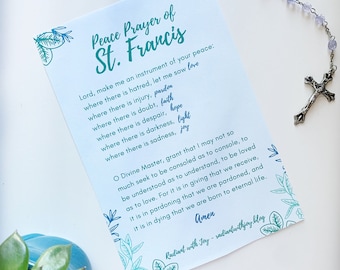 Peace Prayer of
St. Francis
Lord, make me an instrument of your peace:
where there is hatred, let me sow love
where there is injury, pardon
where there is doubt, faith
where there is despair, hope
where there is darkness, light
where there is sadness, joy
O Divine Master, grant that I may not so
much seek to be consoled as to console, to
be understood as to understand, to be loved
as to love. For it is in giving that we receive,
it is in pardoning that we are pardoned, and
it is in dying that we are born to eternal life.
Amen
Radiant with Joy - radiantwithjoy.blog